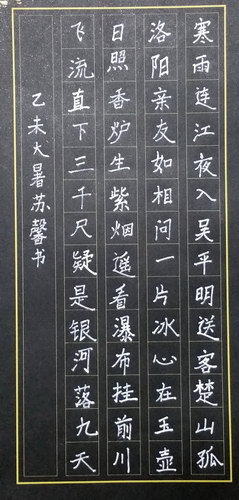 寒雨连江夜入吴平明送客楚山孤
洛阳亲友如相问一片冰心在玉壶
日照香炉生紫烟遥看瀑布挂前川
飞流直下三千尺疑是银河落九天
乙未大暑苏馨书